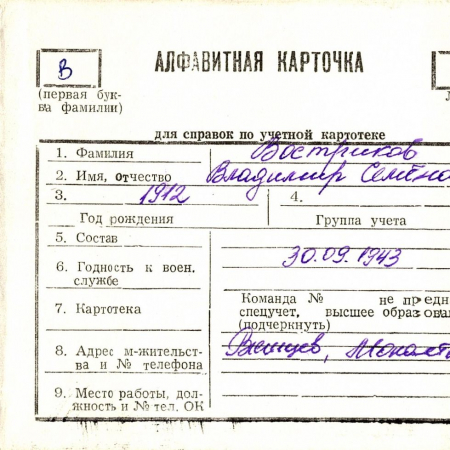 В
АЛФАВИТНАЯ КАРТОЧКА
(первая бук-
ва фамилии)
для справок по учетной картотеке
1. Фамилия Востриков
2. Имя, отчество Владимир Семёно
3. 1912 4.
Год рождения Группа учета
5. Состав
30.09.1943
6. Годность к воен.
службе
7. Картотека
Команда № не предн
спецучет, высшее образова
(подчеркнуть)
8. Адрес м-жительст-
ва и № телефона
9. Место работы, дол-
жность и № тел. ОК